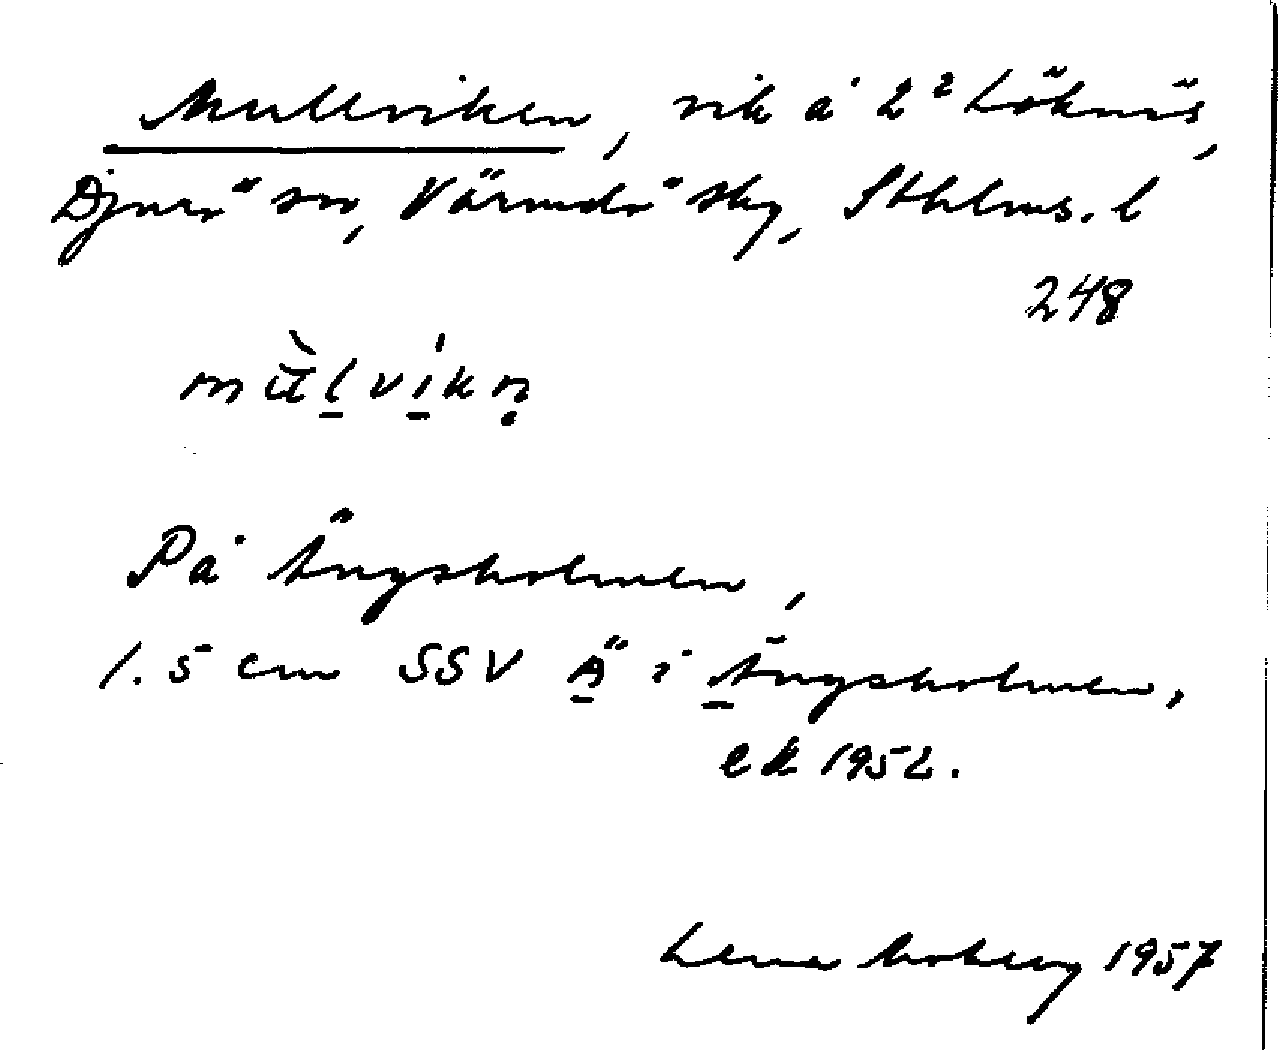 Mullviken, vik å 2² Löknäs,
Djurö sn, Värmdö skg, Sthlms. l
248
mùlvikn̥
På Ängsholmen,
1.5 cm SSV Ä i Ängsholmen,
ek 1952.
Lena Moberg 1957